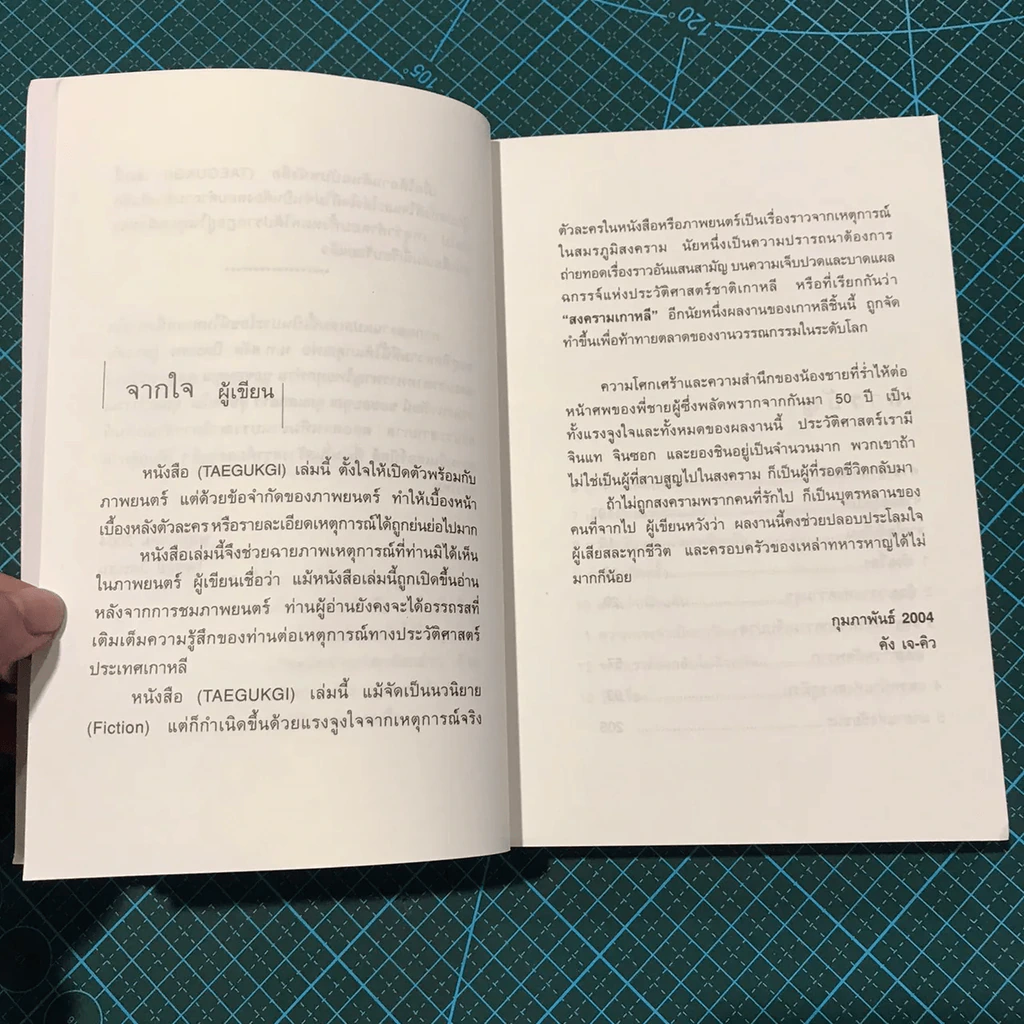 จากใจ ผู้เขียน
หนังสือ (TAEGUKGI) เล่มนี้ ตั้งใจให้เปิดตัวพร้อมกับ
ภาพยนตร์ แต่ด้วยข้อจำกัดของภาพยนตร์ ทำให้เบื้องหน้า
เบื้องหลังตัวละคร หรือรายละเอียดเหตุการณ์ได้ถูกย่นย่อไปมาก
หนังสือเล่มนี้จึงช่วยฉายภาพเหตุการณ์ที่ท่านมิได้เห็น
ในภาพยนตร์ ผู้เขียนเชื่อว่า แม้หนังสือเล่มนี้ถูกเปิดขึ้นอ่าน
หลังจากการชมภาพยนตร์ ท่านผู้อ่านยังคงจะได้อรรถรสที่
เติมเต็มความรู้สึกของท่านต่อเหตุการณ์ทางประวัติศาสตร์
ประเทศเกาหลี
หนังสือ (TAEGUKGI) เล่มนี้ แม้จัดเป็นนวนิยาย
(Fiction) แต่ก็กำเนิดขึ้นด้วยแรงจูงใจจากเหตุการณ์จริง
ตัวละครในหนังสือหรือภาพยนตร์เป็นเรื่องราวจากเหตุการณ์
ในสมรภูมิสงคราม นัยหนึ่งเป็นความปรารถนาต้องการ
ถ่ายทอดเรื่องราวอันแสนสามัญ บนความเจ็บปวดและบาดแผล
ฉกรรจ์แห่งประวัติศาสตร์ชาติเกาหลี หรือที่เรียกกันว่า
“สงครามเกาหลี” อีกนัยหนึ่งผลงานของเกาหลีชิ้นนี้ ถูกจัด
ทำขึ้นเพื่อท้าทายตลาดของงานวรรณกรรมในระดับโลก
ความโศกเศร้าและความสำนึกของน้องชายที่ร่ำไห้ต่อ
หน้าศพของพี่ชายผู้ซึ่งพลัดพรากจากกันมา 50 ปี เป็น
ทั้งแรงจูงใจและทั้งหมดของผลงานนี้ ประวัติศาสตร์เรามี
จินแท จินซอก และยองชินอยู่เป็นจำนวนมาก พวกเขาถ้า
ไม่ใช่เป็นผู้ที่สาบสูญไปในสงคราม ก็เป็นผู้ที่รอดชีวิตกลับมา
ถ้าไม่ถูกสงครามพรากคนที่รักไป ก็เป็นบุตรหลานของ
คนที่จากไป ผู้เขียนหวังว่า ผลงานนี้คงช่วยปลอบประโลมใจ
ผู้เสียสละทุกชีวิต และครอบครัวของเหล่าทหารหาญได้ไม่
มากก็น้อย
กุมภาพันธ์ 2004
คัง เจ-คิว
105°
120°